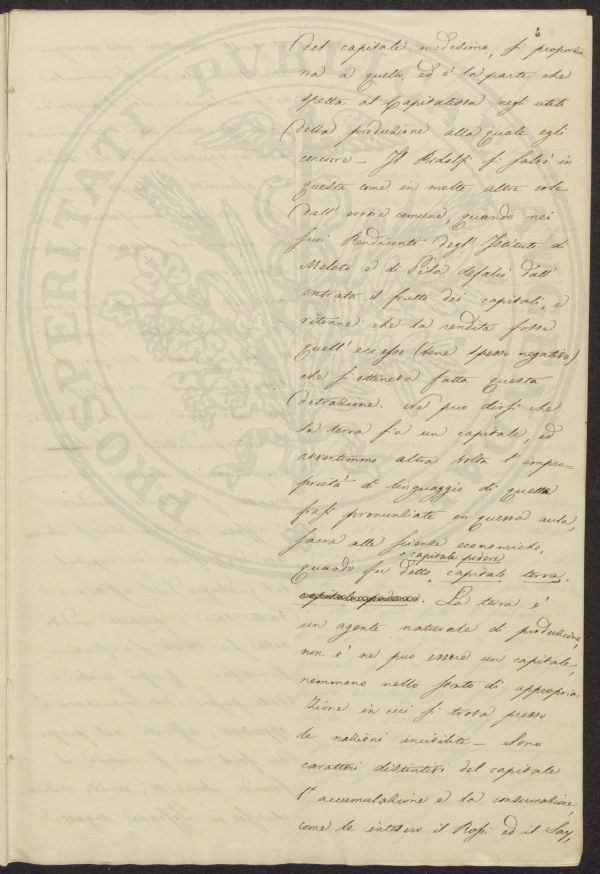 5
del capitale medesimo, si proporzio
na a quello, ed è la parte che
spetta al Capitalista negli utili
della produzione alla quale egli
concorre – Il Ridolfi si salvò in
questa come in molte altre cose
dall'errore comune, quando nei
suoi Rendiconti degl'Istituti di
Meleto e di Pisa defalcò dall'
entrata il frutto dei capitali, e
ritenne che la rendita fosse
quell'eccesso (bene spesso negativo)
che si otteneva fatta questa
detrazione. Nè può dirsi che
la terra sia un capitale, ed
avvertimmo altra volta l'impro-
prietà di linguaggio di quelle
frasi pronunziate in questa aula,
sacra alle scienze economiche,
quando fu detto capitale terra,
e capitale podere
. La terra è
un agente naturale di produzione,
non è nè può essere un capitale,
nemmeno nello stato di appropria
zione in cui si trova presso
le nazioni incivilite – Sono
caratteri distintivi del capitale
l'accumulazione e la consumazione,
come le intesero il Rossi ed il Say,
PROSPERITATI PVBLICAE